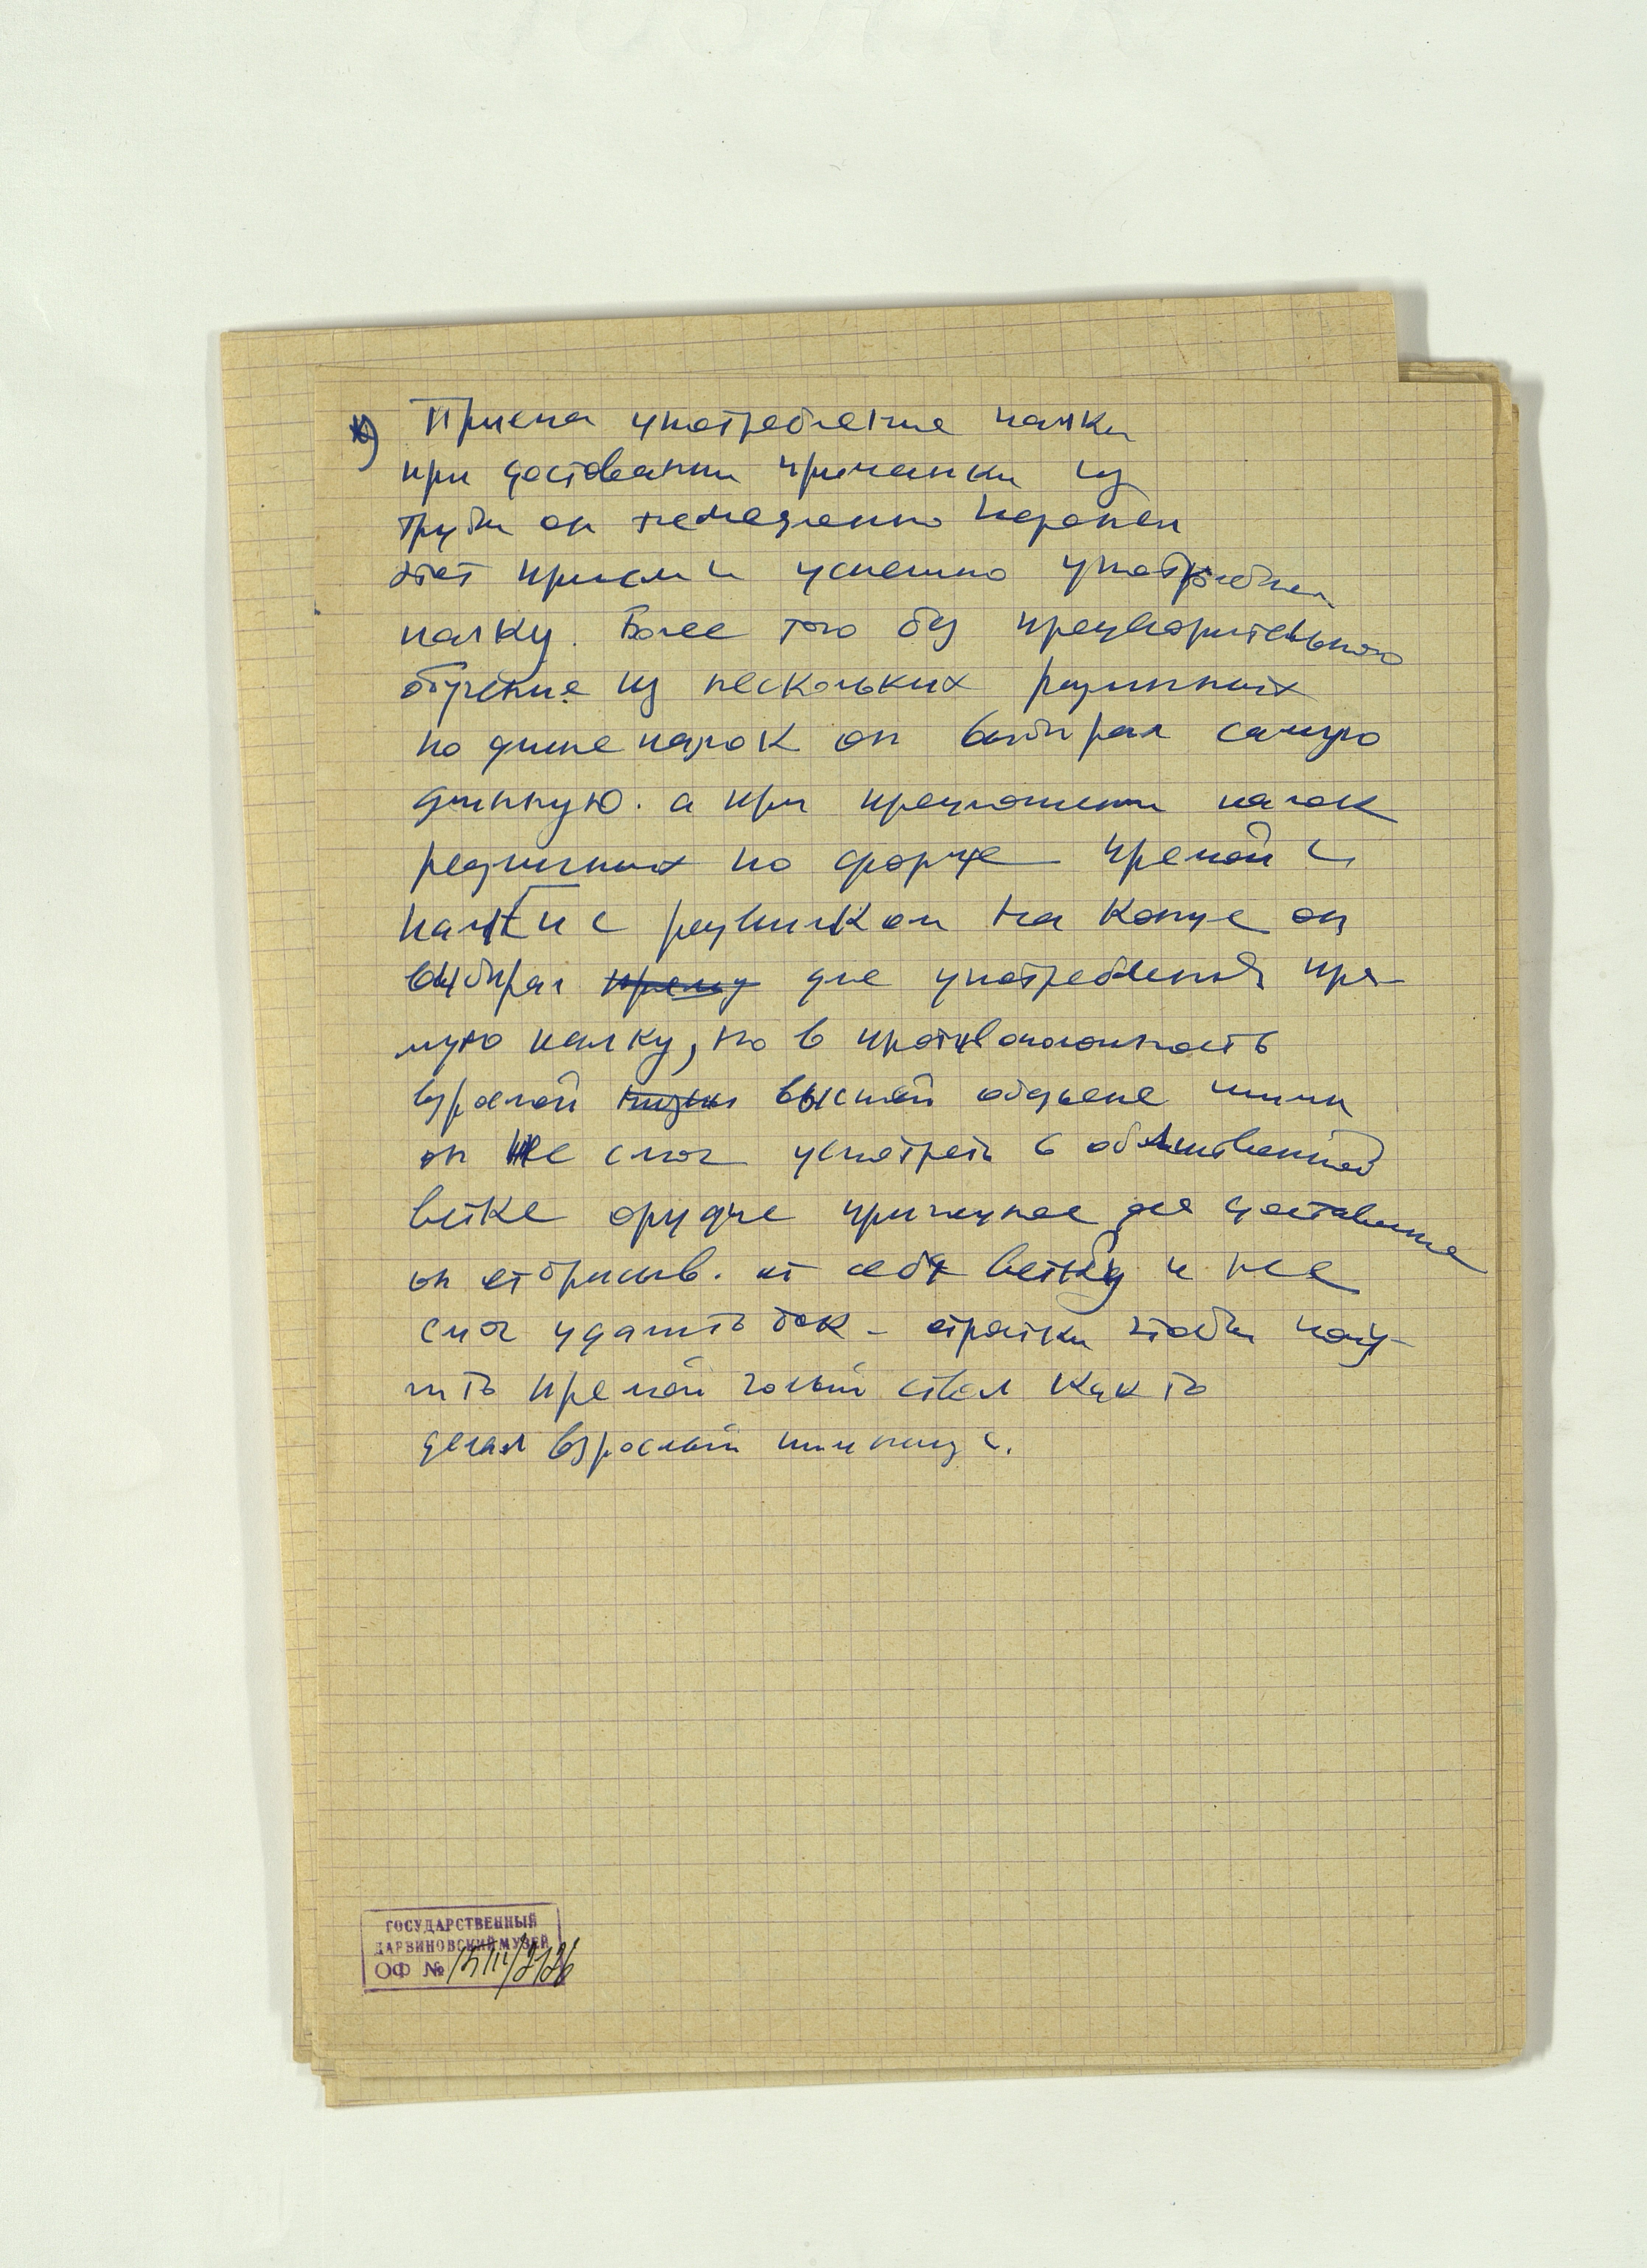 *) Приема употребления палки
при доставании приманки из
трубы он немедленно перенял
этот прием и успешно употреблял
палку. Более того без предварительного
обучения из нескольких различных
по длине палок он выбирал самую
длинную. а при предложении палок
различных по форме прямой и
палки с развилком на конце он
выбирал прямую для употребления пря-
мую палку, но в противоположность
взрослой низш высшей обезьяне шимп
он не смог усмотреть в облиственной
ветке орудие пригодное для доставания
он отбрасыв. от себя ветку и не
смог удалить бок-отростки чтобы полу-
чить прямой голый ствол как то
делал взрослый шимпанзе.
ГОСУДАРСТВЕННЫЙ
ДАРВИНОВСКИЙ МУЗЕЙ
ОФ №